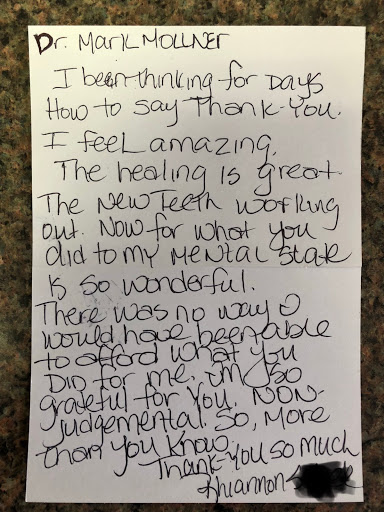 Dr. Mark Mollner
I been thinking for Days
How to say Thank-You.
I feel amazing.
The healing is great.
The New Teeth working
out. Now for what you
did to my mental state
is so wonderful.
There was no way I
would have been able
to afford what you
DID for me. I'm so
grateful for you. NON-
judgemental. So, More
than you know.
Thank-you so much
Rhiannon